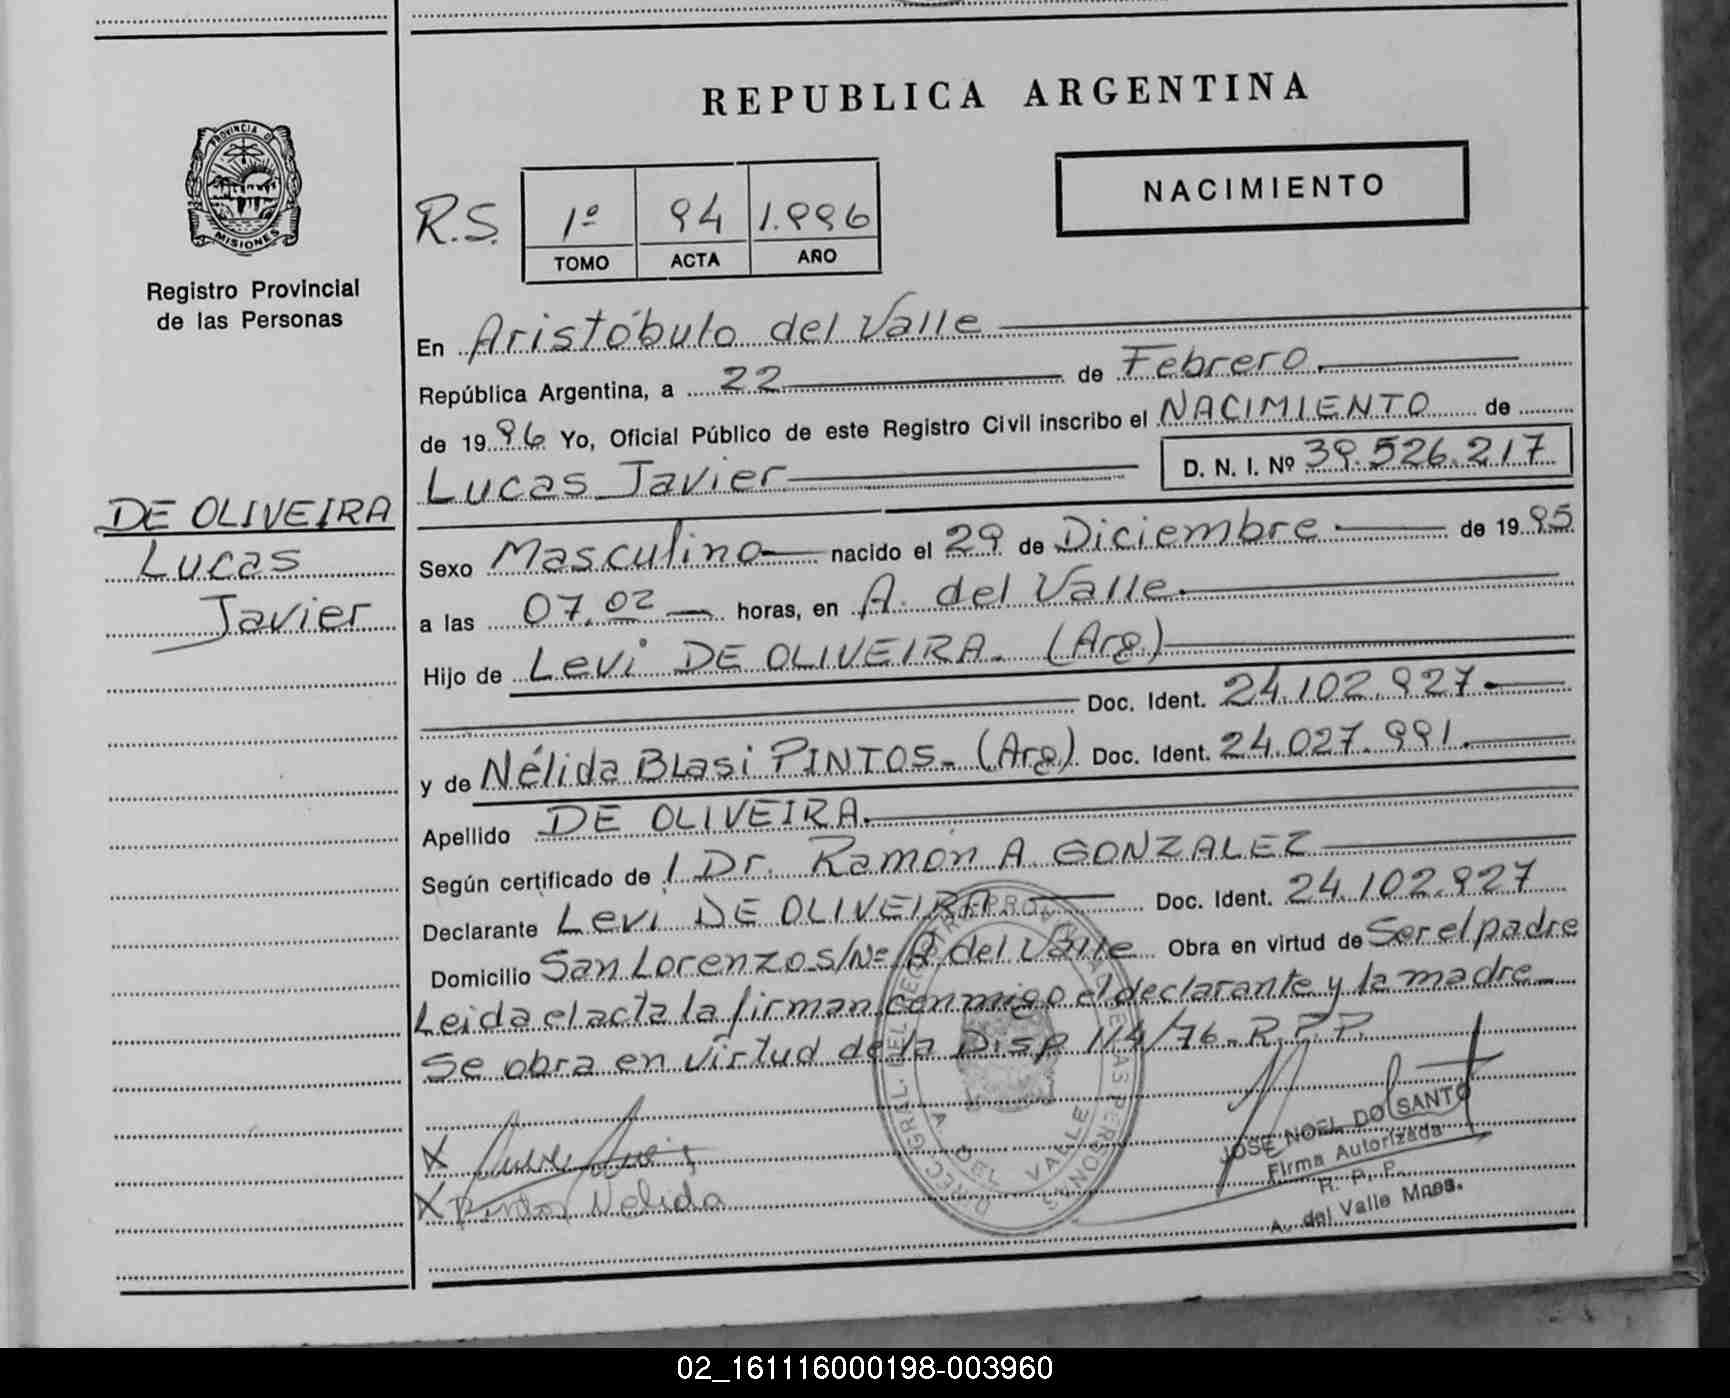 REPUBLICA ARGENTINA
PROVINCIA DE
MISIONES
Registro Provincial
de las Personas
R.S.
1º 94 1.996
TOMO ACTA AÑO
NACIMIENTO
DE OLIVEIRA
Lucas
Javier
En Aristóbulo del Valle
República Argentina, a 22 de Febrero
de 1996 Yo, Oficial Público de este Registro Civil inscribo el NACIMIENTO de
Lucas Javier D. N. I. Nº 39.526.217
Sexo Masculino nacido el 29 de Diciembre de 1995
a las 07.02 horas, en A. del Valle
Hijo de Levi DE OLIVEIRA. (Arg.)
Doc. Ident. 24.102.927
y de Nélida Blasi PINTOS. (Arg) Doc. Ident. 24.027.991.
Apellido DE OLIVEIRA.
Según certificado de / Dr. Ramón A. GONZALEZ
Declarante Levi DE OLIVEIRA. Doc. Ident. 24.102.927
Domicilio San Lorenzo S/Nº A. del Valle Obra en virtud de Ser el padre
Leida el acta la firman conmigo el declarante y la madre
Se obra en virtud de la Disp 114/76. R.P.P.
X
X Pintos Nelida
A. DEL VALLE
JOSE NOEL DO SANTO
Firma Autorizada
R. P. P.
A. del Valle Mnes.
02_161116000198-003960